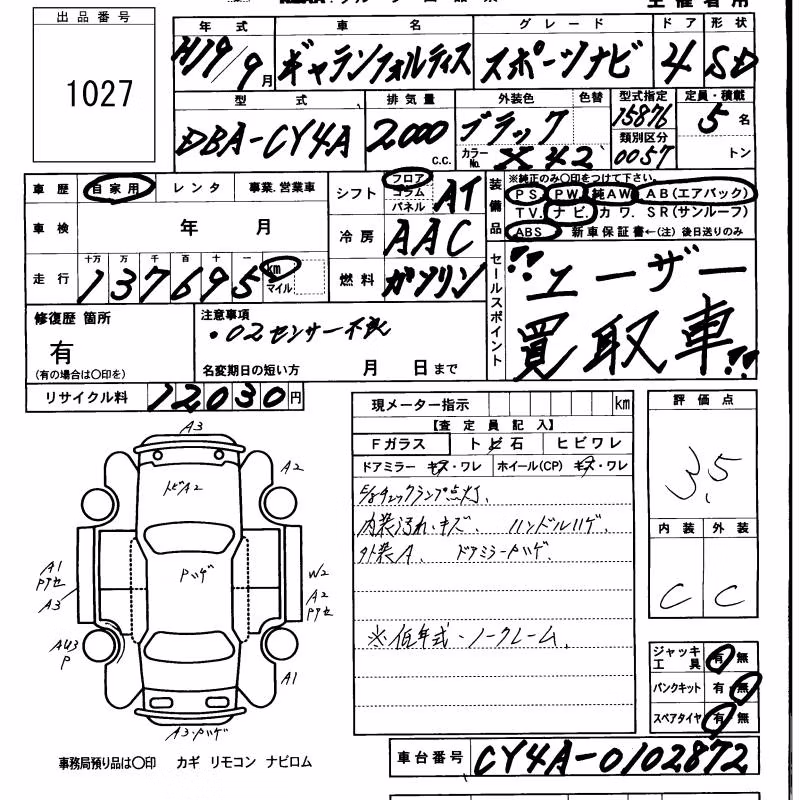 出品番号
1027
主催者用
年式 車名 グレード ドア 形状
H19/9月 ギャランフォルティス スポーツナビ 4 SD
型式 排気量 外装色 色替 型式指定 定員・積載
DBA-CY4A 2000 c.c. ブラック 15876 5名
カラーNo. X42 類別区分 0057 トン
車歴 自家用 レンタ 事業.営業車
シフト フロア コラム パネル AT
装備品
※純正のみ〇印をつけて下さい。
PS PW 純AW AB(エアバック)
TV. ナビ. カワ. SR(サンルーフ)
ABS 新車保証書←(注)後日送りのみ
車検 年 月
冷房 AAC
走行 十万 万 千 百 十 一
137695 km マイル
燃料 ガソリン
セールスポイント
ユーザー
買取車
修復歴 箇所
有
(有の場合は〇印を)
注意事項
・O2センサー不良
名変期日の短い方 月 日まで
リサイクル料 12030円
現メーター指示 km
【査定員記入】
Fガラス トビ石 ヒビワレ
ドアミラー キズ・ワレ ホイール(CP) キズ・ワレ
E/gチェックランプ点灯.
内装汚れ・キズ. ハンドルハゲ.
外装A. ドアミラーPハゲ.
※低年式・ノークレーム.
評価点
3.5
内装 外装
C C
ジャッキ工具 有・無
パンクキット 有・無
スペアタイヤ 有・無
A3
トビA2
A2
Pハゲ
A1
Pアセ
A3
W2
A2
Pアセ
AU3
P
A1
A3・Pハゲ
事務局預り品は〇印 カギ リモコン ナビロム
車台番号 CY4A-0102872